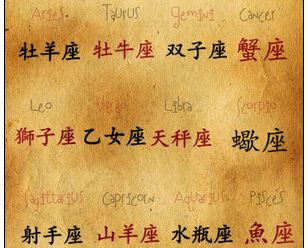 Aries Taurus Gemini Cancer
牡羊座 牡牛座 双子座 蟹座
Leo Virgo Libra Scorpio
獅子座 乙女座 天秤座 蠍座
Sagittarius Capricorn Aquarius Pisces
射手座 山羊座 水瓶座 魚座